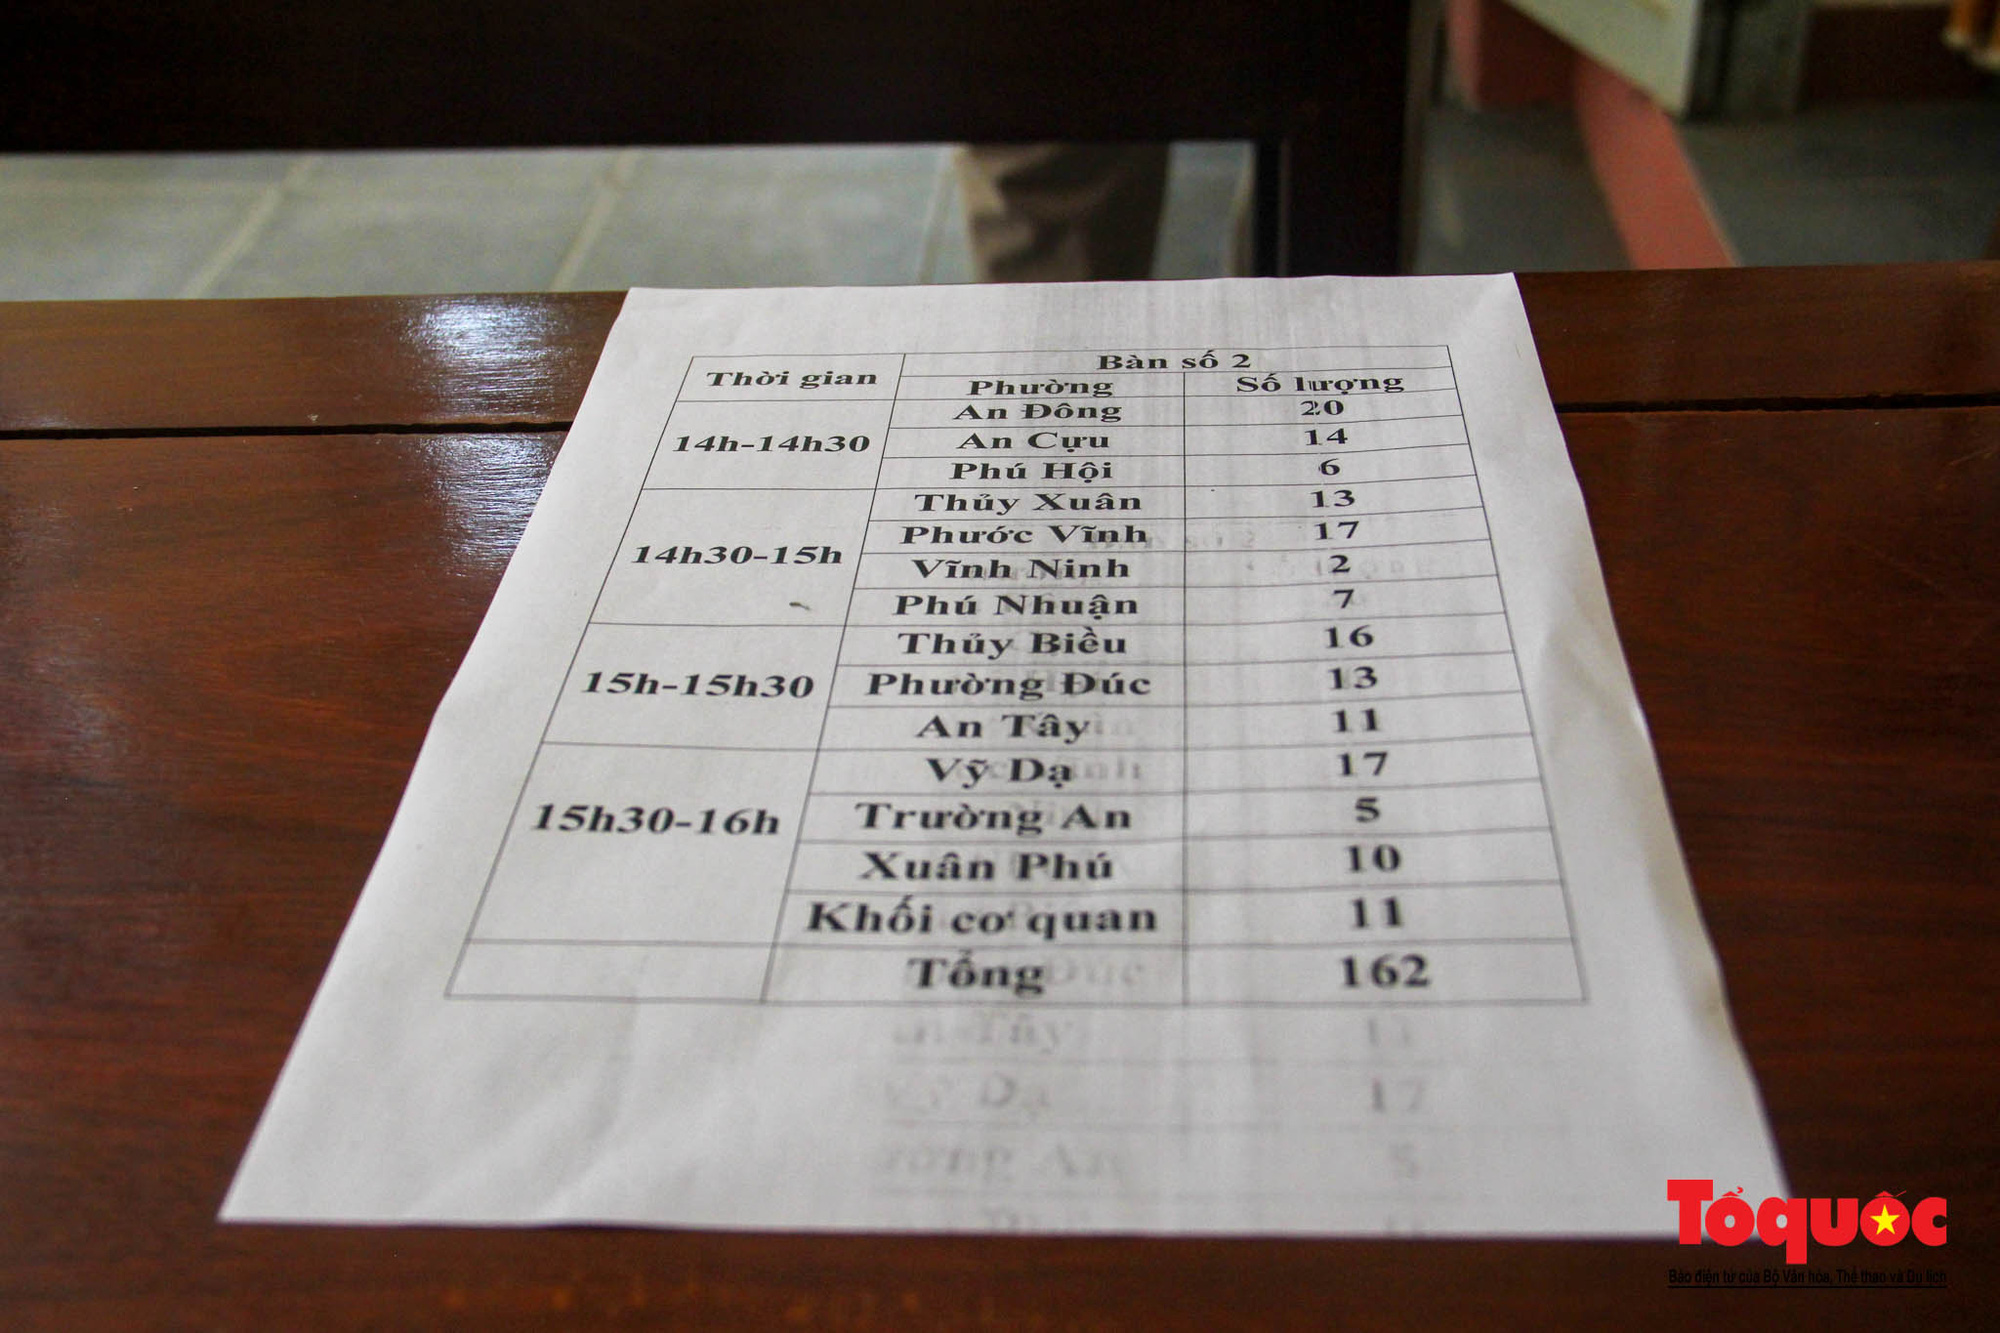 Thời gian Bàn số 2
Phường Số lượng
14h-14h30 An Đông 20
An Cựu 14
Phú Hội 6
14h30-15h Thủy Xuân 13
Phước Vĩnh 17
Vĩnh Ninh 2
Phú Nhuận 7
15h-15h30 Thủy Biều 16
Phường Đúc 13
An Tây 11
15h30-16h Vỹ Dạ 17
Trường An 5
Xuân Phú 10
Khối cơ quan 11
Tổng 162
TổQuốc
Báo điện tử của Bộ Văn hóa, Thể thao và Du lịch